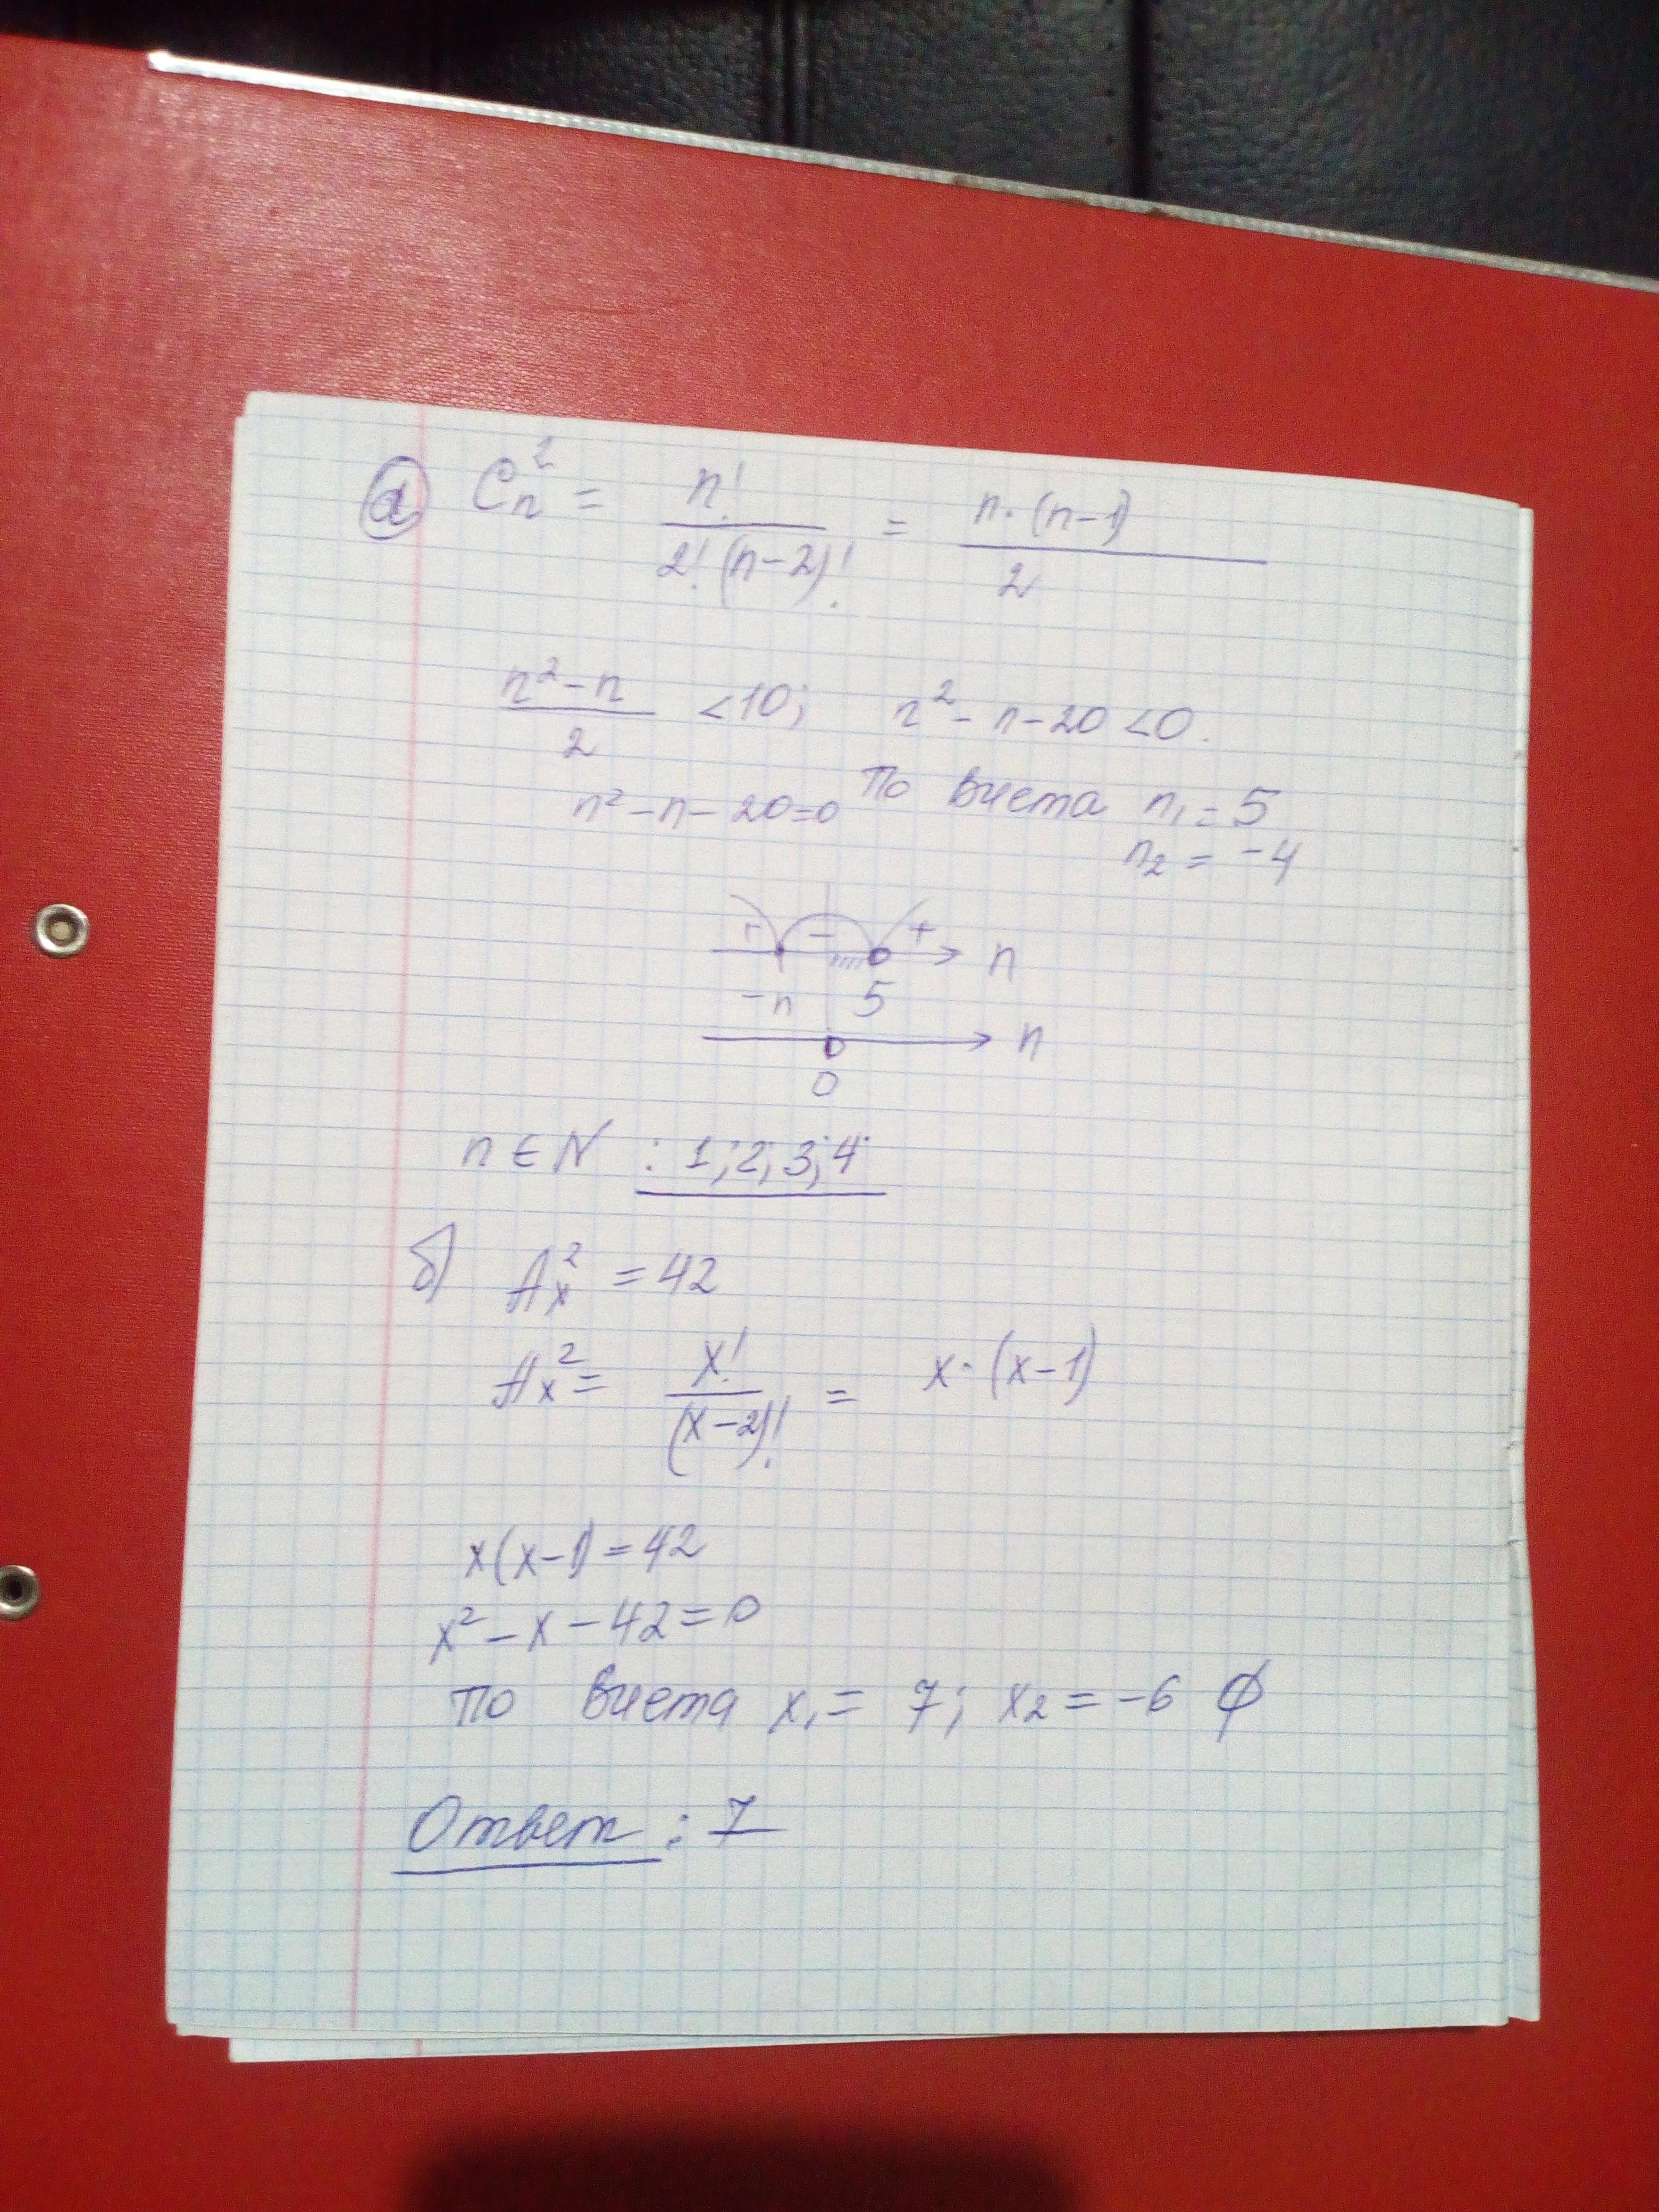 а) Cₙ² = n! / 2!(n-2)! = n·(n-1) / 2
(n²-n) / 2 <10; n²-n-20<0.
n²-n-20=0 По Виета n₁=5
n₂=-4
+ - + n
-n 5
n
0
n∈N : 1;2;3;4
б) Aₓ²=42
Aₓ²= x! / (x-2)! = x·(x-1)
x(x-1)=42
x²-x-42=0
По Виета x₁= 7; x₂=-6 ∅
Ответ: 7